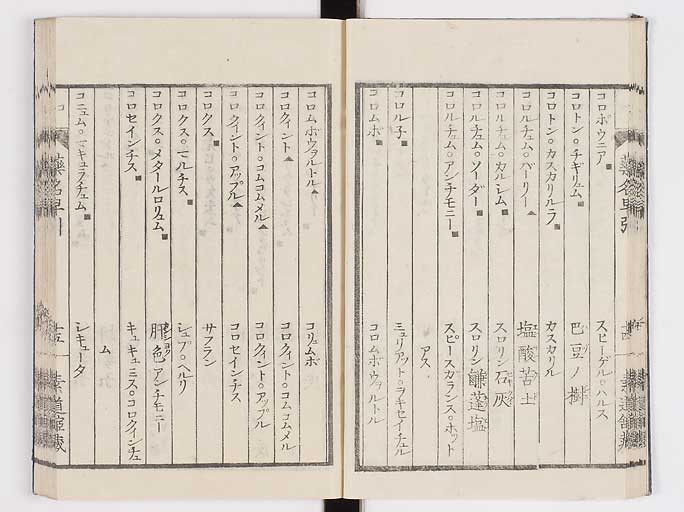 コロポウニア■ スピーゲル○ハルス
コロトン○チギリュム■ 巴豆ノ樹
コロトン○カスカリルラ■ カスカリル
コロルチュム○バーリー▲ 塩酸苦土
コロルチュム○カルシム■ スロリン石灰
コロルチュム○ソーダー■ スロリン鎌蓬塩
コロルチュム○アンチモニー■ スピースガランス○ホット
アス
コロル子■ ミュリアット○ヲキセイチェル
コロムボ■ コロムボウヲルトル
コロムボウヲルトル▲ コリュムボ
コロクィント▲ コロクィント○コムコムメル
コロクィント○コムコムメル▲ コロクィント○アップル
コロクィント○アップル▲ コロセインチス
コロクス■ サフラン
コロクス○マルチス■ シュプ○ヘルリ
コロクス○メタールロリュム■ 膠色アンチモニー
コロセインチス■ キュキュミス○コロクィンチュ
ム
コニュム○マキュラチュム■ シキュータ
藥名早引